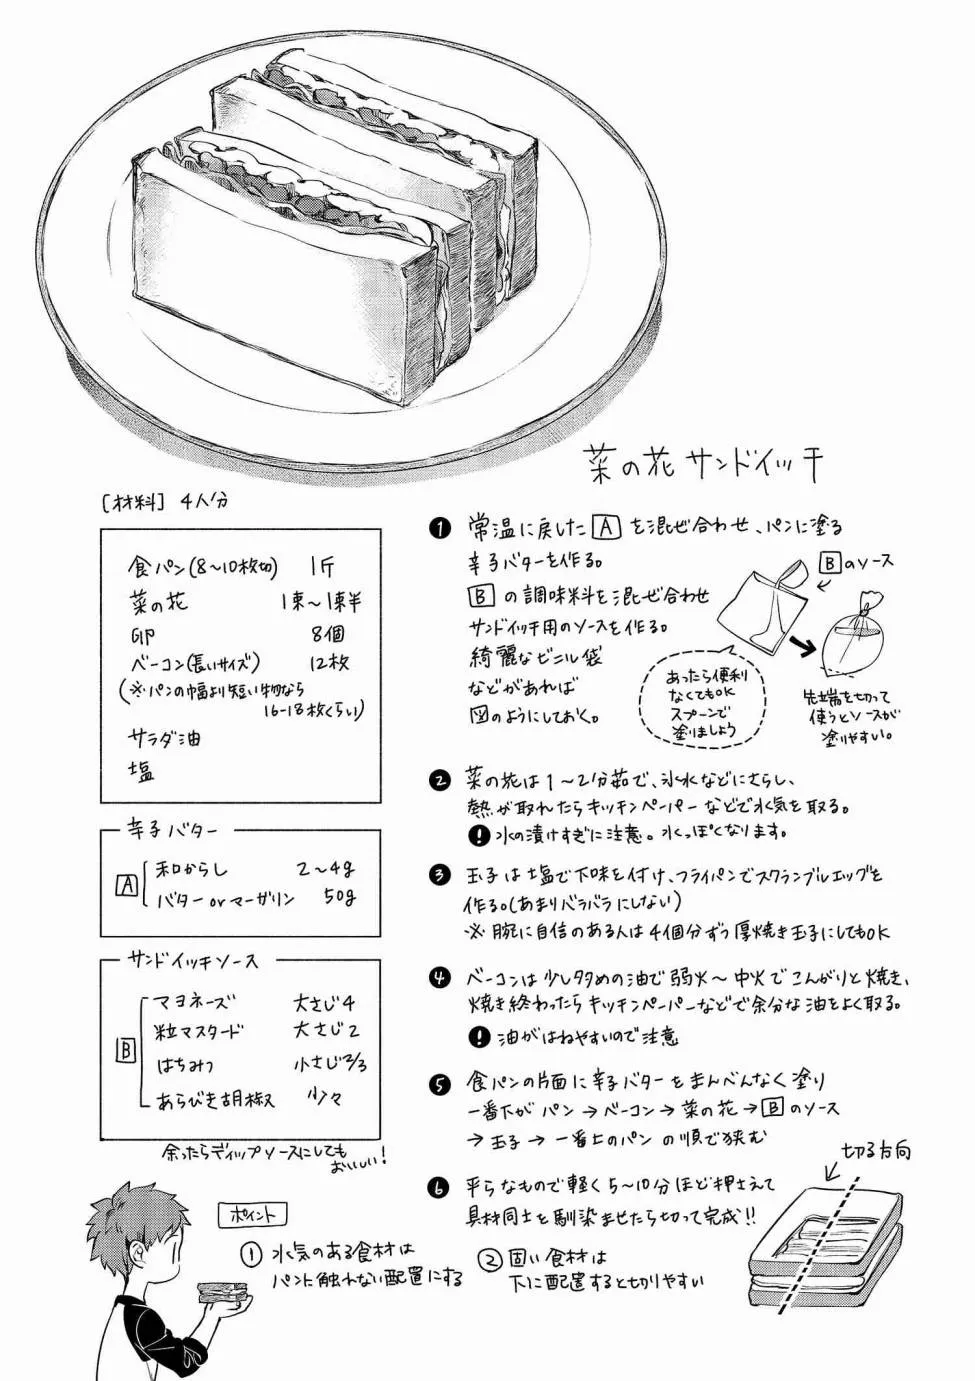 菜の花サンドイッチ
[材料] 4人分
食パン(8〜10枚切) 1斤
菜の花 1束〜1束半
卵 8個
ベーコン(長いサイズ) 12枚
(※パンの幅より短い物なら
16-18枚くらい)
サラダ油
塩
辛子バター
A
和からし 2〜4g
バター or マーガリン 50g
サンドイッチソース
B
マヨネーズ 大さじ4
粒マスタード 大さじ2
はちみつ 小さじ2/3
あらびき胡椒 少々
余ったらディップソースにしても
おいしい!
❶ 常温に戻した A を混ぜ合わせ、パンに塗る
辛子バターを作る。
B の調味料を混ぜ合わせ
サンドイッチ用のソースを作る。
綺麗なビニル袋
などがあれば
図のようにしておく。
Bのソース
あったら便利
なくてもOK
スプーンで
塗りましょう
先端を切って
使うとソースが
塗りやすい。
❷ 菜の花は1〜2分茹で、氷水などにさらし、
熱が取れたらキッチンペーパーなどで水気を取る。
! 水の漬けすぎに注意。水っぽくなります。
❸ 玉子は塩で下味を付け、フライパンでスクランブルエッグを
作る。(あまりバラバラにしない)
※腕に自信のある人は4個分ずつ厚焼き玉子にしてもOK
❹ ベーコンは少し多めの油で弱火〜中火でこんがりと焼き、
焼き終わったらキッチンペーパーなどで余分な油をよく取る。
! 油がはねやすいので注意
❺ 食パンの片面に辛子バターをまんべんなく塗り
一番下がパン→ベーコン→菜の花→Bのソース
→玉子→一番上のパンの順で挟む
❻ 平らなもので軽く5〜10分ほど押さえて
具材同士を馴染ませたら切って完成!!
切る方向
ポイント
① 水気のある食材は
パンに触れない配置にする
② 固い食材は
下に配置すると切りやすい